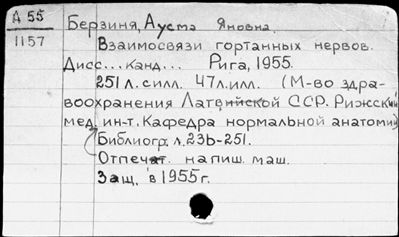 А 55
1157
Берзиня, Ауста Яновна.
Взаимосвязи гортанных нервов.
Дисс... канд... Рига, 1955.
251 л. с илл. 47 л. илл. (М-во здра-
воохранения Латвийской ССР. Рижский
мед. ин-т. Кафедра нормальной анатомии)
Библиогр. л. 236-251.
Отпечат. на пиш. маш.
Защ. в 1955 г.